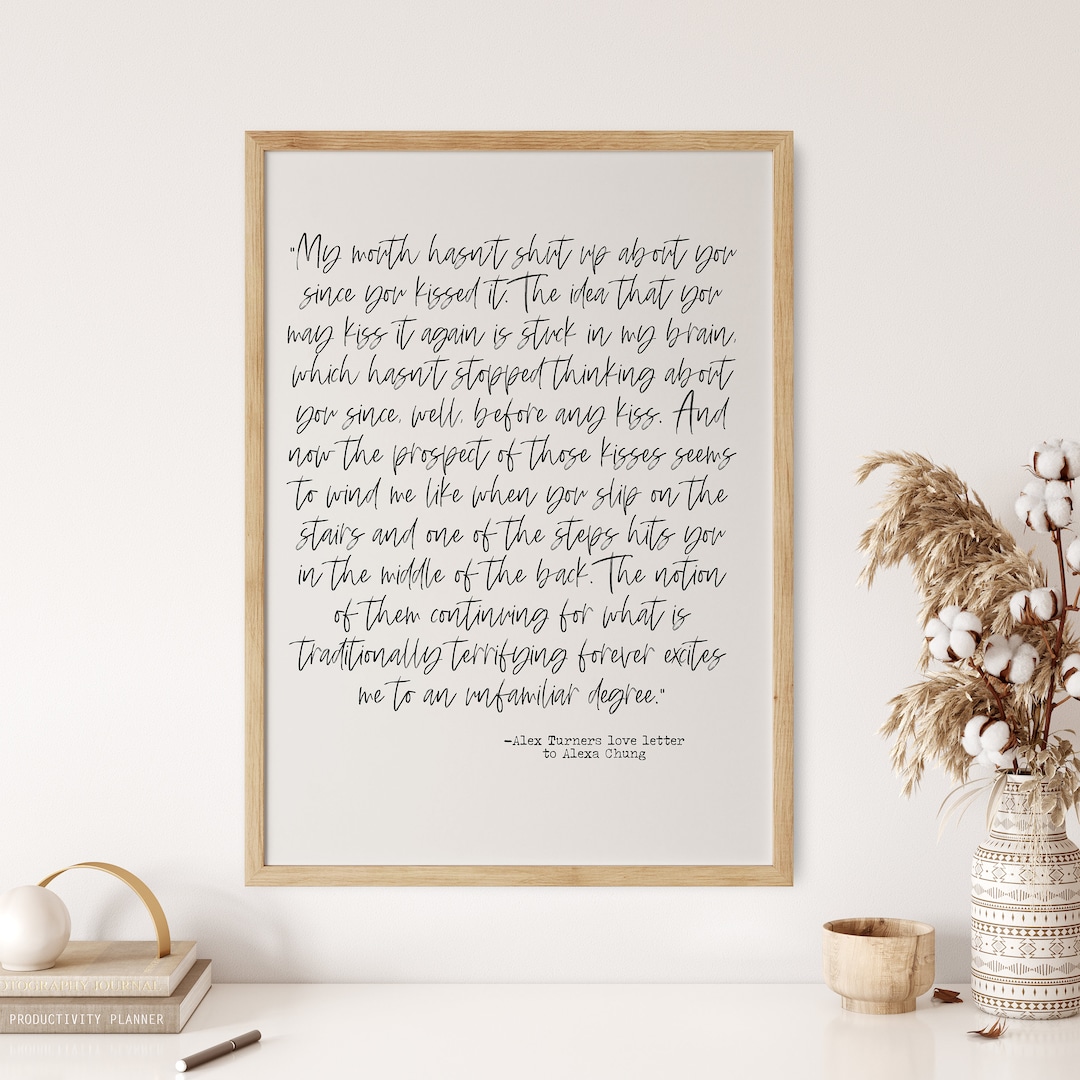 "My mouth hasn't shut up about you
since you kissed it. The idea that you
may kiss it again is stuck in my brain,
which hasn't stopped thinking about
you since, well, before any kiss. And
now the prospect of those kisses seems
to wind me like when you slip on the
stairs and one of the steps hits you
in the middle of the back. The notion
of them continuing for what is
traditionally terrifying forever excites
me to an unfamiliar degree."
-Alex Turners love letter
to Alexa Chung
OTOGRAPHY JOURNAL
PRODUCTIVITY PLANNER